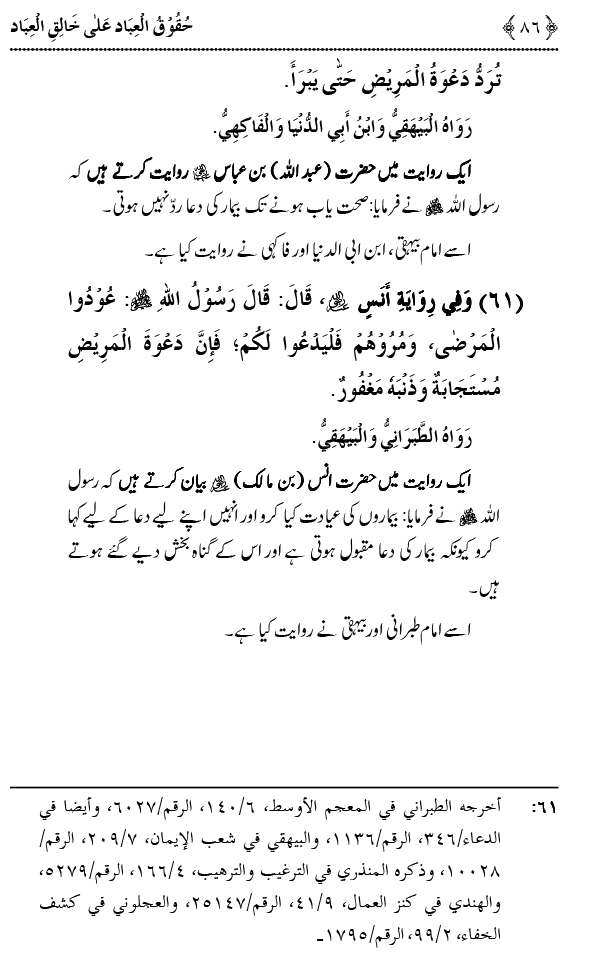 ﴿٨٦﴾ حُقُوْقُ الْعِبَاد عَلٰى خَالِقِ الْعِبَاد
تُرَدُّ دَعْوَةُ الْمَرِيْضِ حَتّٰى يَبْرَأَ.
رَوَاهُ الْبَيْهَقِيُّ وَابْنُ أَبِي الدُّنْيَا وَالْفَاكِهِيُّ.
ایک روایت میں حضرت (عبد اللہ) بن عباس ﷺ روایت کرتے ہیں کہ
رسول اللہ ﷺ نے فرمایا: صحت یاب ہونے تک بیمار کی دعا ردّ نہیں ہوتی۔
اسے امام بیہقی، ابن ابی الدنیا اور فاکہی نے روایت کیا ہے۔
(٦١) وَفِي رِوَايَةِ أَنَسٍ ﷺ، قَالَ: قَالَ رَسُوْلُ اللهِ ﷺ: عُوْدُوا
الْمَرْضٰى، وَمُرُوْهُمْ فَلْيَدْعُوا لَكُمْ؛ فَإِنَّ دَعْوَةَ الْمَرِيْضِ
مُسْتَجَابَةٌ وَذَنْبَهٗ مَغْفُورٌ.
رَوَاهُ الطَّبَرَانِيُّ وَالْبَيْهَقِيُّ.
ایک روایت میں حضرت انس (بن مالک) بیان کرتے ہیں کہ رسول
اللہ ﷺ نے فرمایا: بیماروں کی عیادت کیا کرو اور انہیں اپنے لیے دعا کے لیے کہا
کرو کیونکہ بیمار کی دعا مقبول ہوتی ہے اور اس کے گناہ بخش دیے گئے ہوتے
ہیں۔
اسے امام طبرانی اور بیہقی نے روایت کیا ہے۔
٦١: أخرجه الطبراني في المعجم الأوسط، ٦/١٤٠، الرقم/٦٠٢٧، وأيضا في
الدعاء/٣٤٦، الرقم/١١٣٦، والبيهقي في شعب الإيمان، ٧/٢٠٩، الرقم/
١٠٠٢٨، وذكره المنذري في الترغيب والترهيب، ٤/١٦٦، الرقم/٥٢٧٩،
والهندي في كنز العمال، ٩/٤١، الرقم/٢٥١٤٧، والعجلوني في كشف
الخفاء، ٢/٩٩، الرقم/١٧٩٥ـ